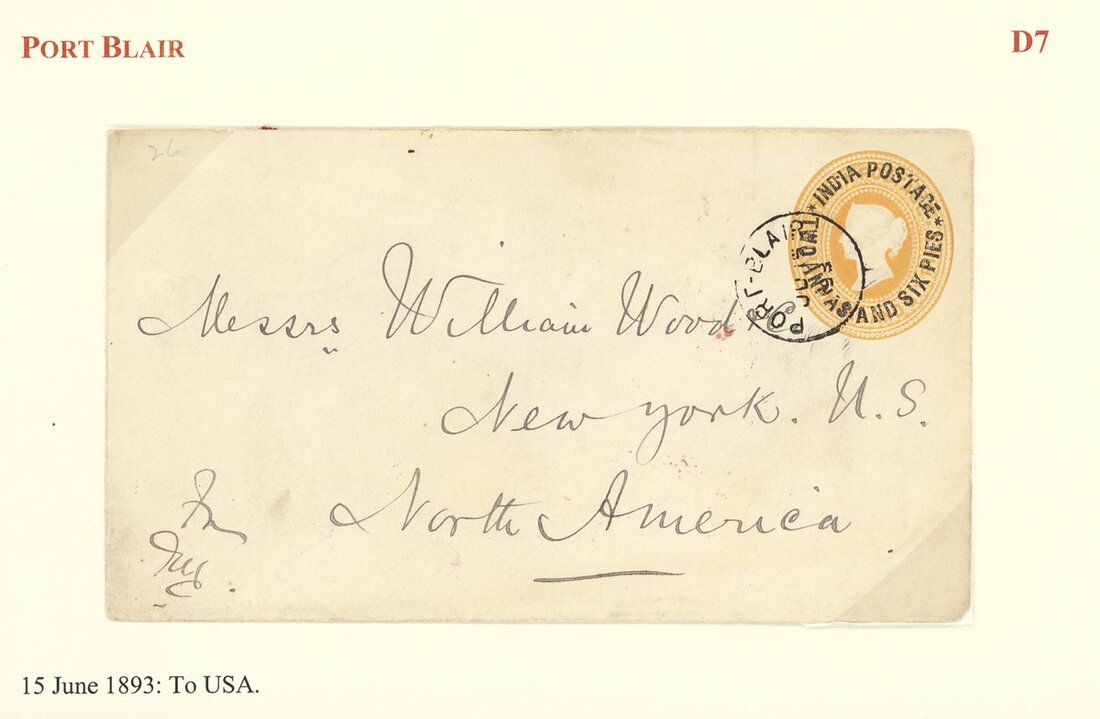 PORT BLAIR
D7
260
INDIA POSTAGE
TWO ANNAS AND SIX PIES
PORT-BLAIR
Messrs William Wood
New York. U.S.
North America
15 June 1893: To USA.